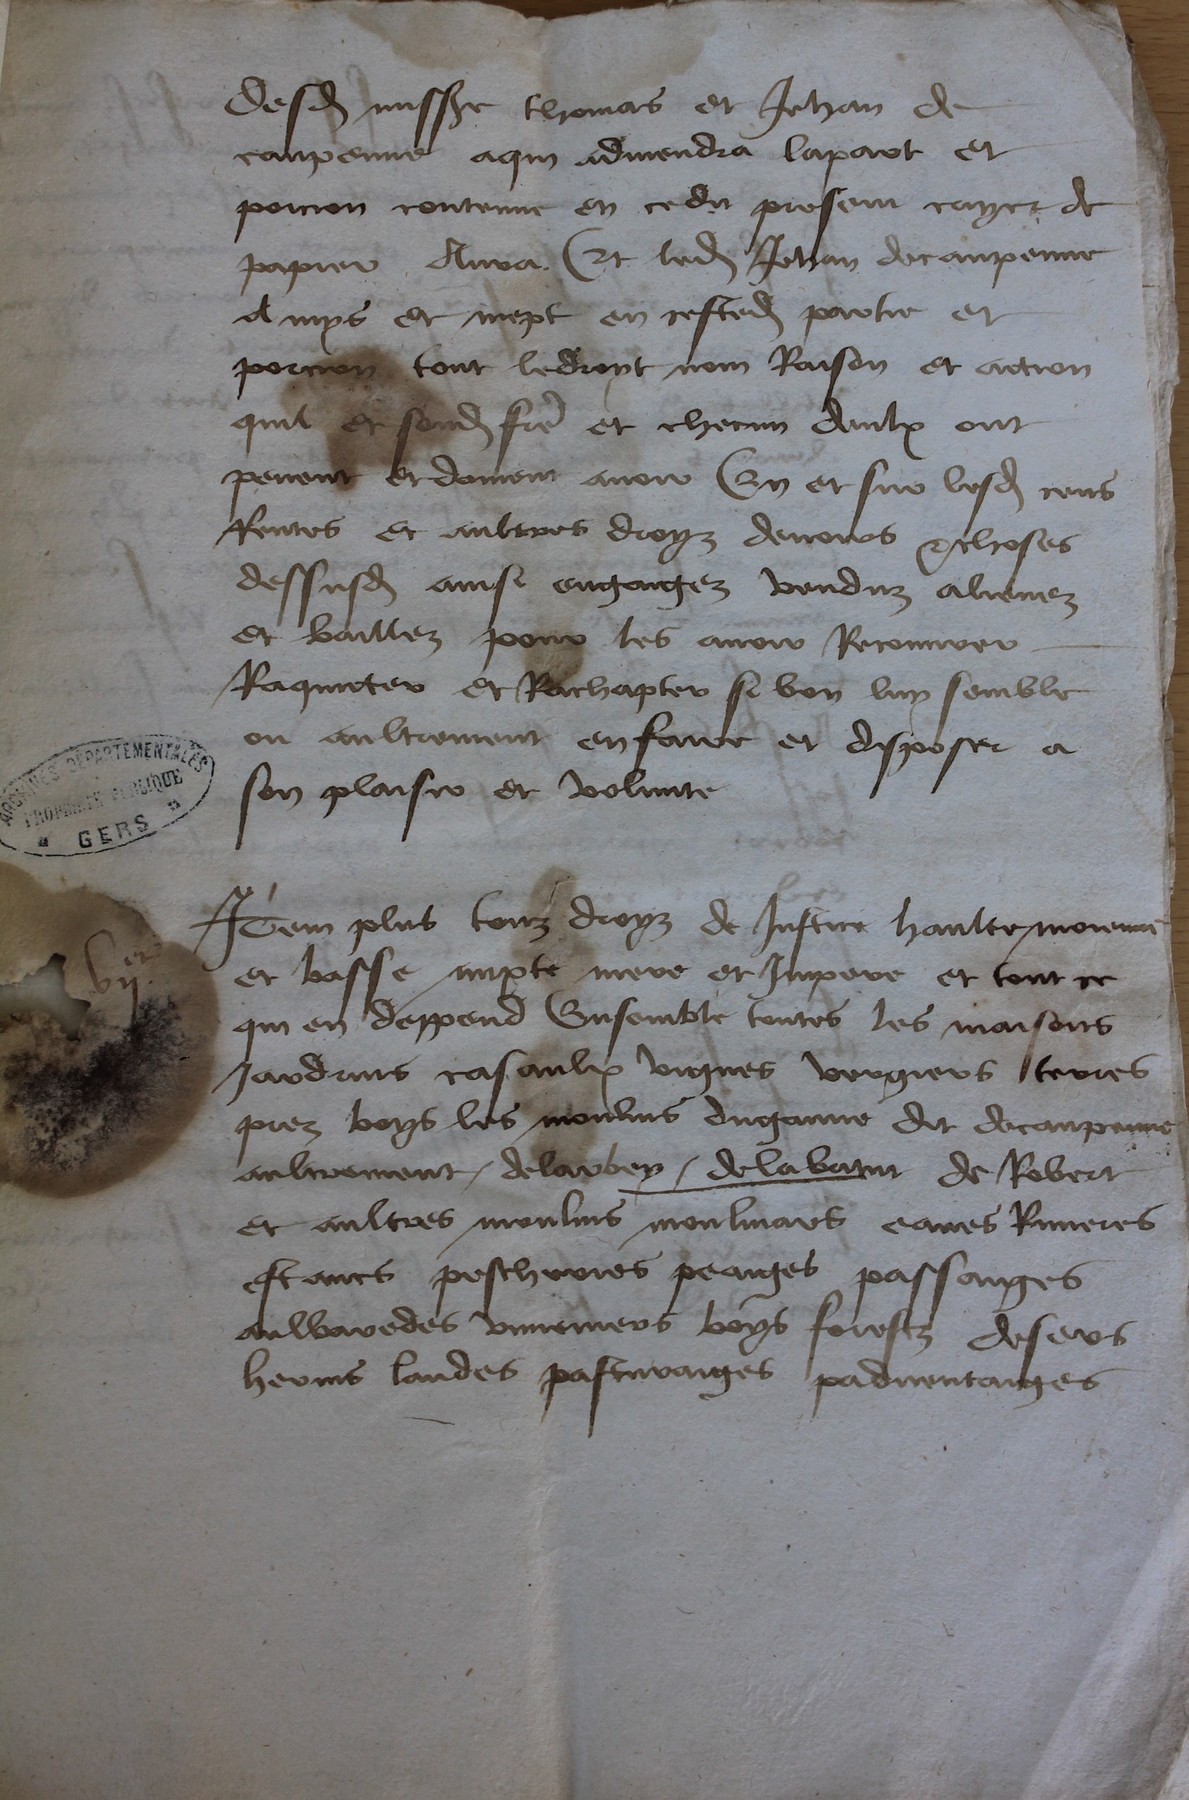 desd missre thomas et Jehan de
caupenne aqui advendra lapart et
porcion contenue en cedit present cayer de
papier Aura Et led Jehan decaupenne
a mys et mept en cested partie et
porcion tout ledroyt nom Raison et action
quil et sond fre et checun deulx ont
pevent et doivent avoir En et sur lesd cens
Rentes et aultres droyz devoirs choses
dessusd ainsi engaigez venduz alienez
et baillez pour les avoir Recouvrer
Raquiter et Rachapter si bon luy semble
ou aultrement enfaire et disposer a
son plaisir et volunte
ARCHIVES DEPARTEMENTALES
PROPRIETE PUBLIQUE
GERS
Item plus touz droyz de Justice haulte moienne
et basse mixte mere et Impere et tout ce
qui en deppend Ensemble toutes les maisons
Jardrins casaulx vignes vergiers terres
prez boys les moulins duganne dit decaupenne
aultrement / delarbey / delabatut de Robert
et aultres moulins moulinars eaues Rivieres
estancs pescheries peaiges passaiges
aulbaredes vimeniers boys forestz desers
herms landes pasturaiges padventaiges
vii